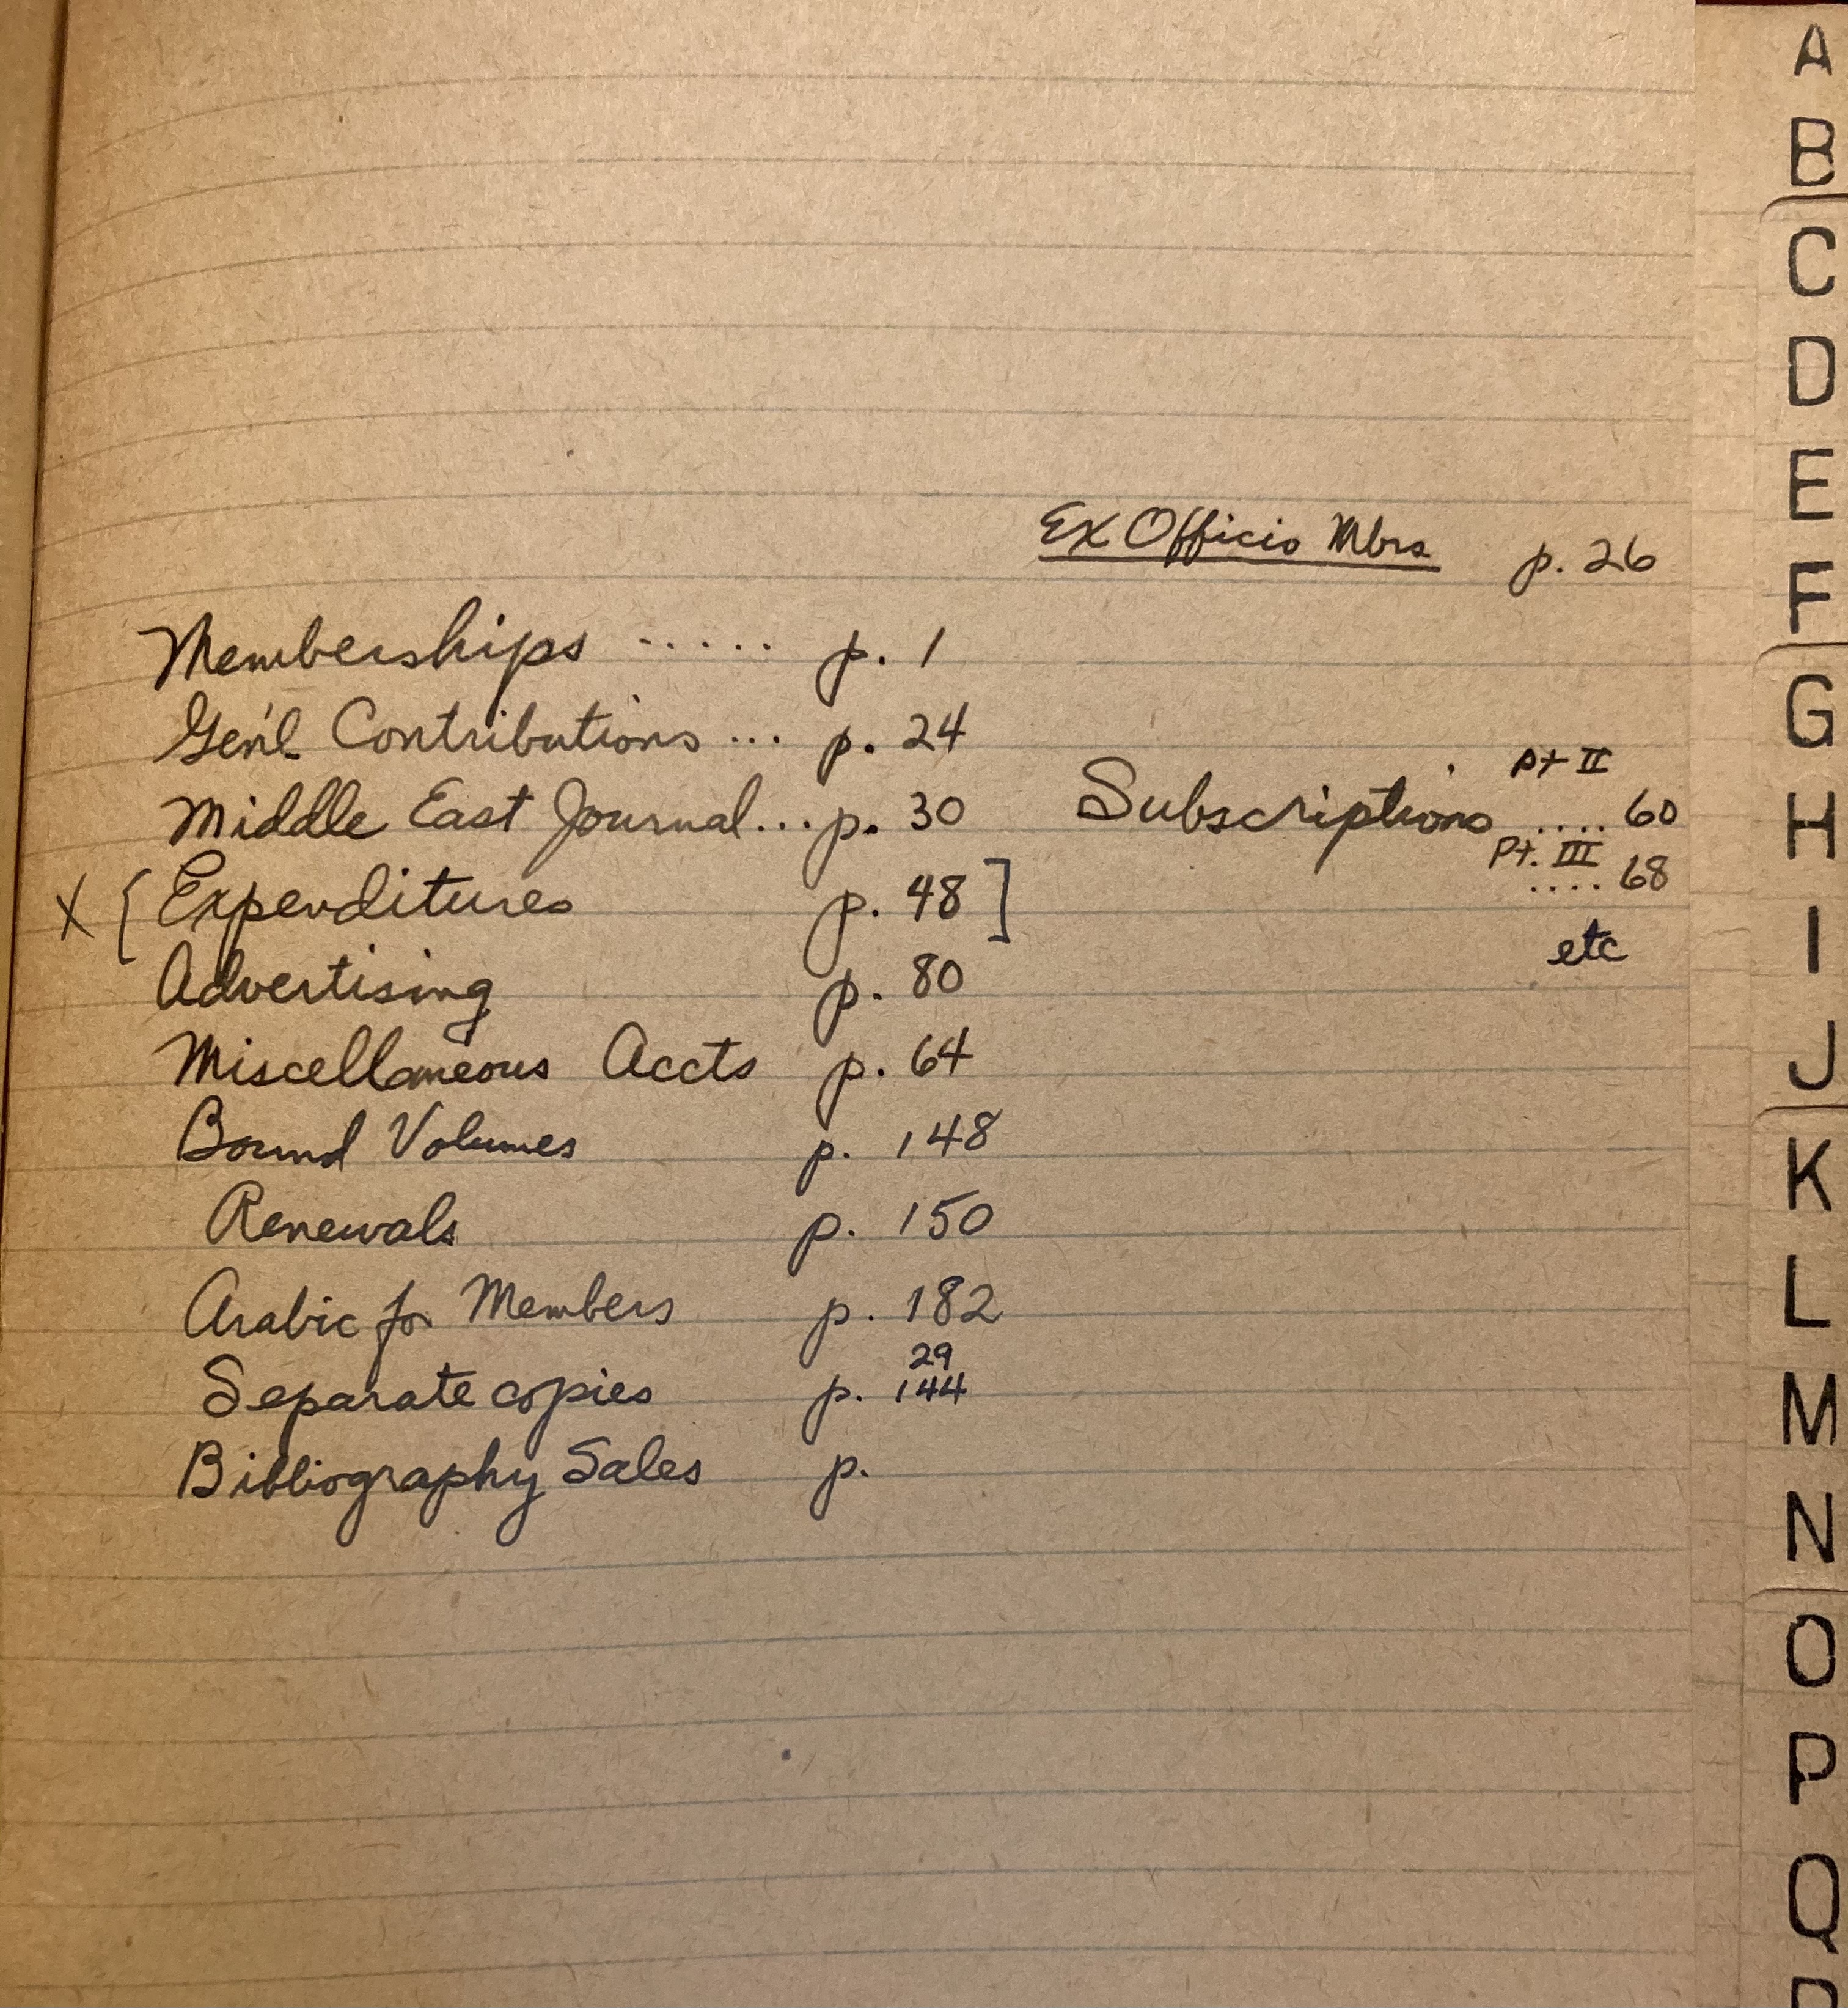 Ex Officio Mbrs p. 26
Memberships ..... p. 1
Gen'l Contributions ... p. 24
Middle East Journal ... p. 30
Subscriptions pt II .... 60
Pt. III .... 68
etc
X { Expenditures p. 48 ]
Advertising p. 80
Miscellaneous Accts p. 64
Bound Volumes p. 148
Renewals p. 150
Arabic for Members p. 182
29
Separate copies p. 144
Bibliography Sales p.
A
B
C
D
E
F
G
H
I
J
K
L
M
N
O
P
Q